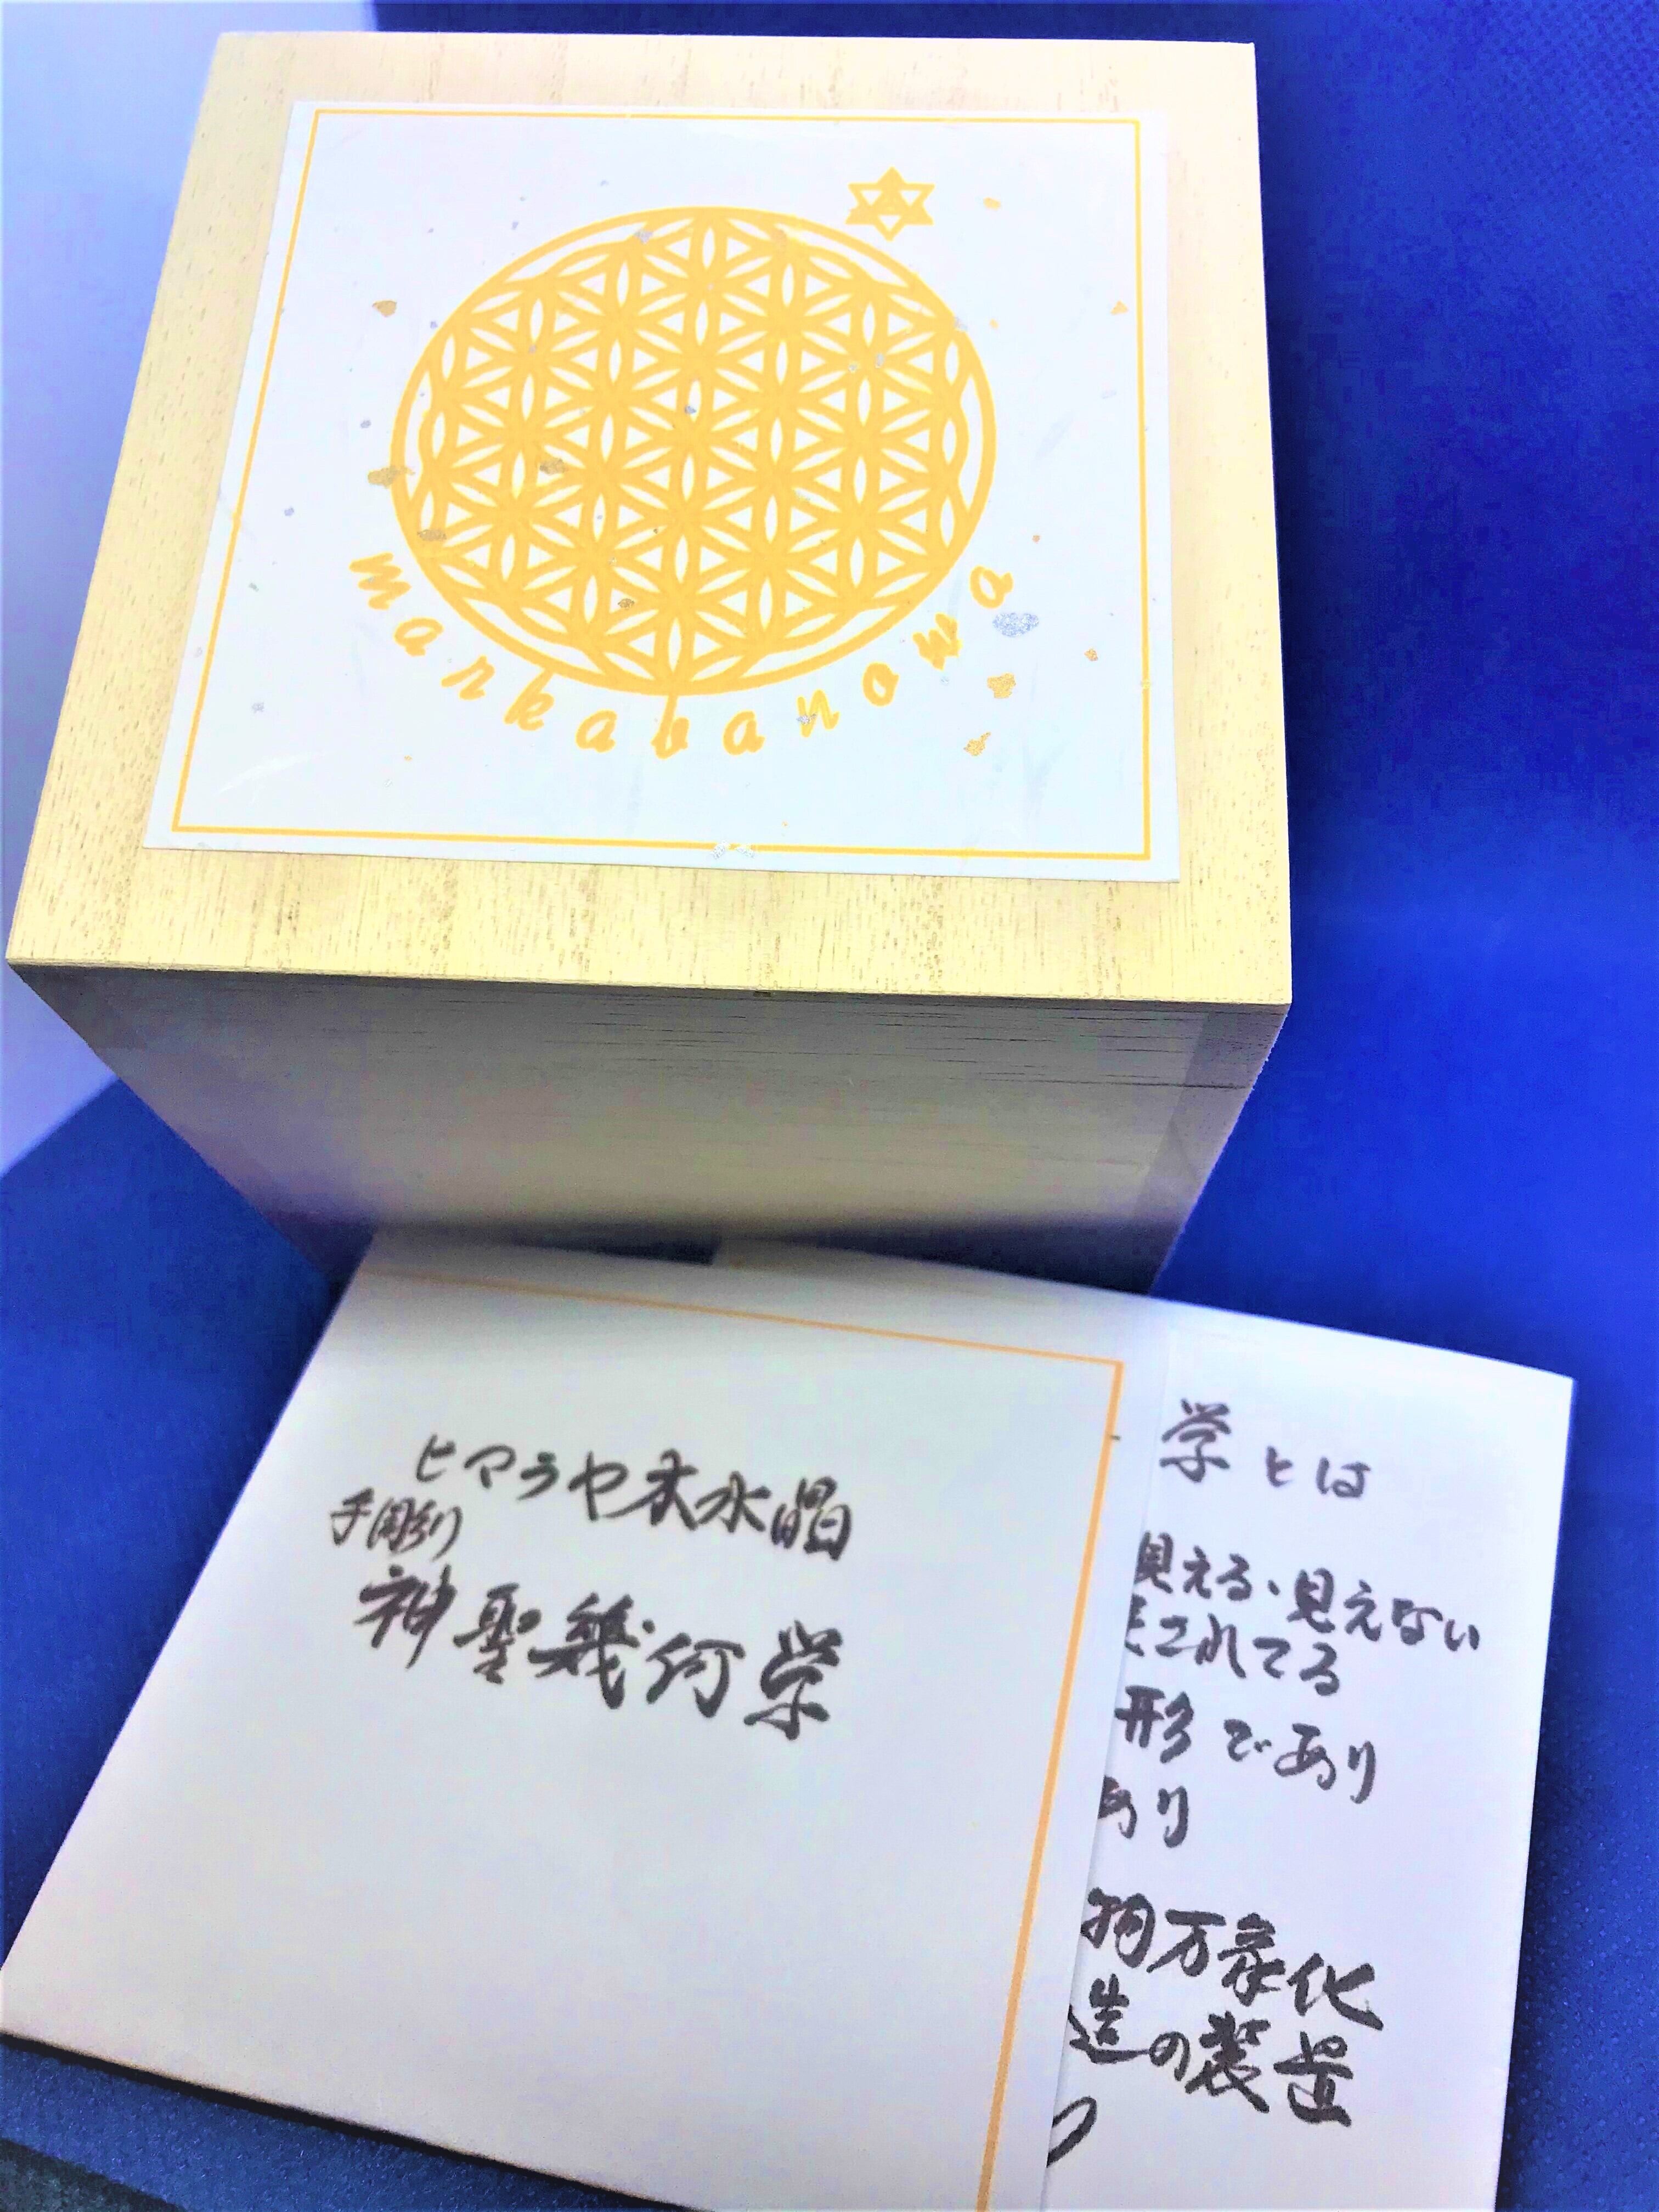 markabanowa
ヒマラヤ水水晶
手彫り
神聖幾何学
学とは
見える、見えない
されてる
形であり
あり
物万象化
造の装置